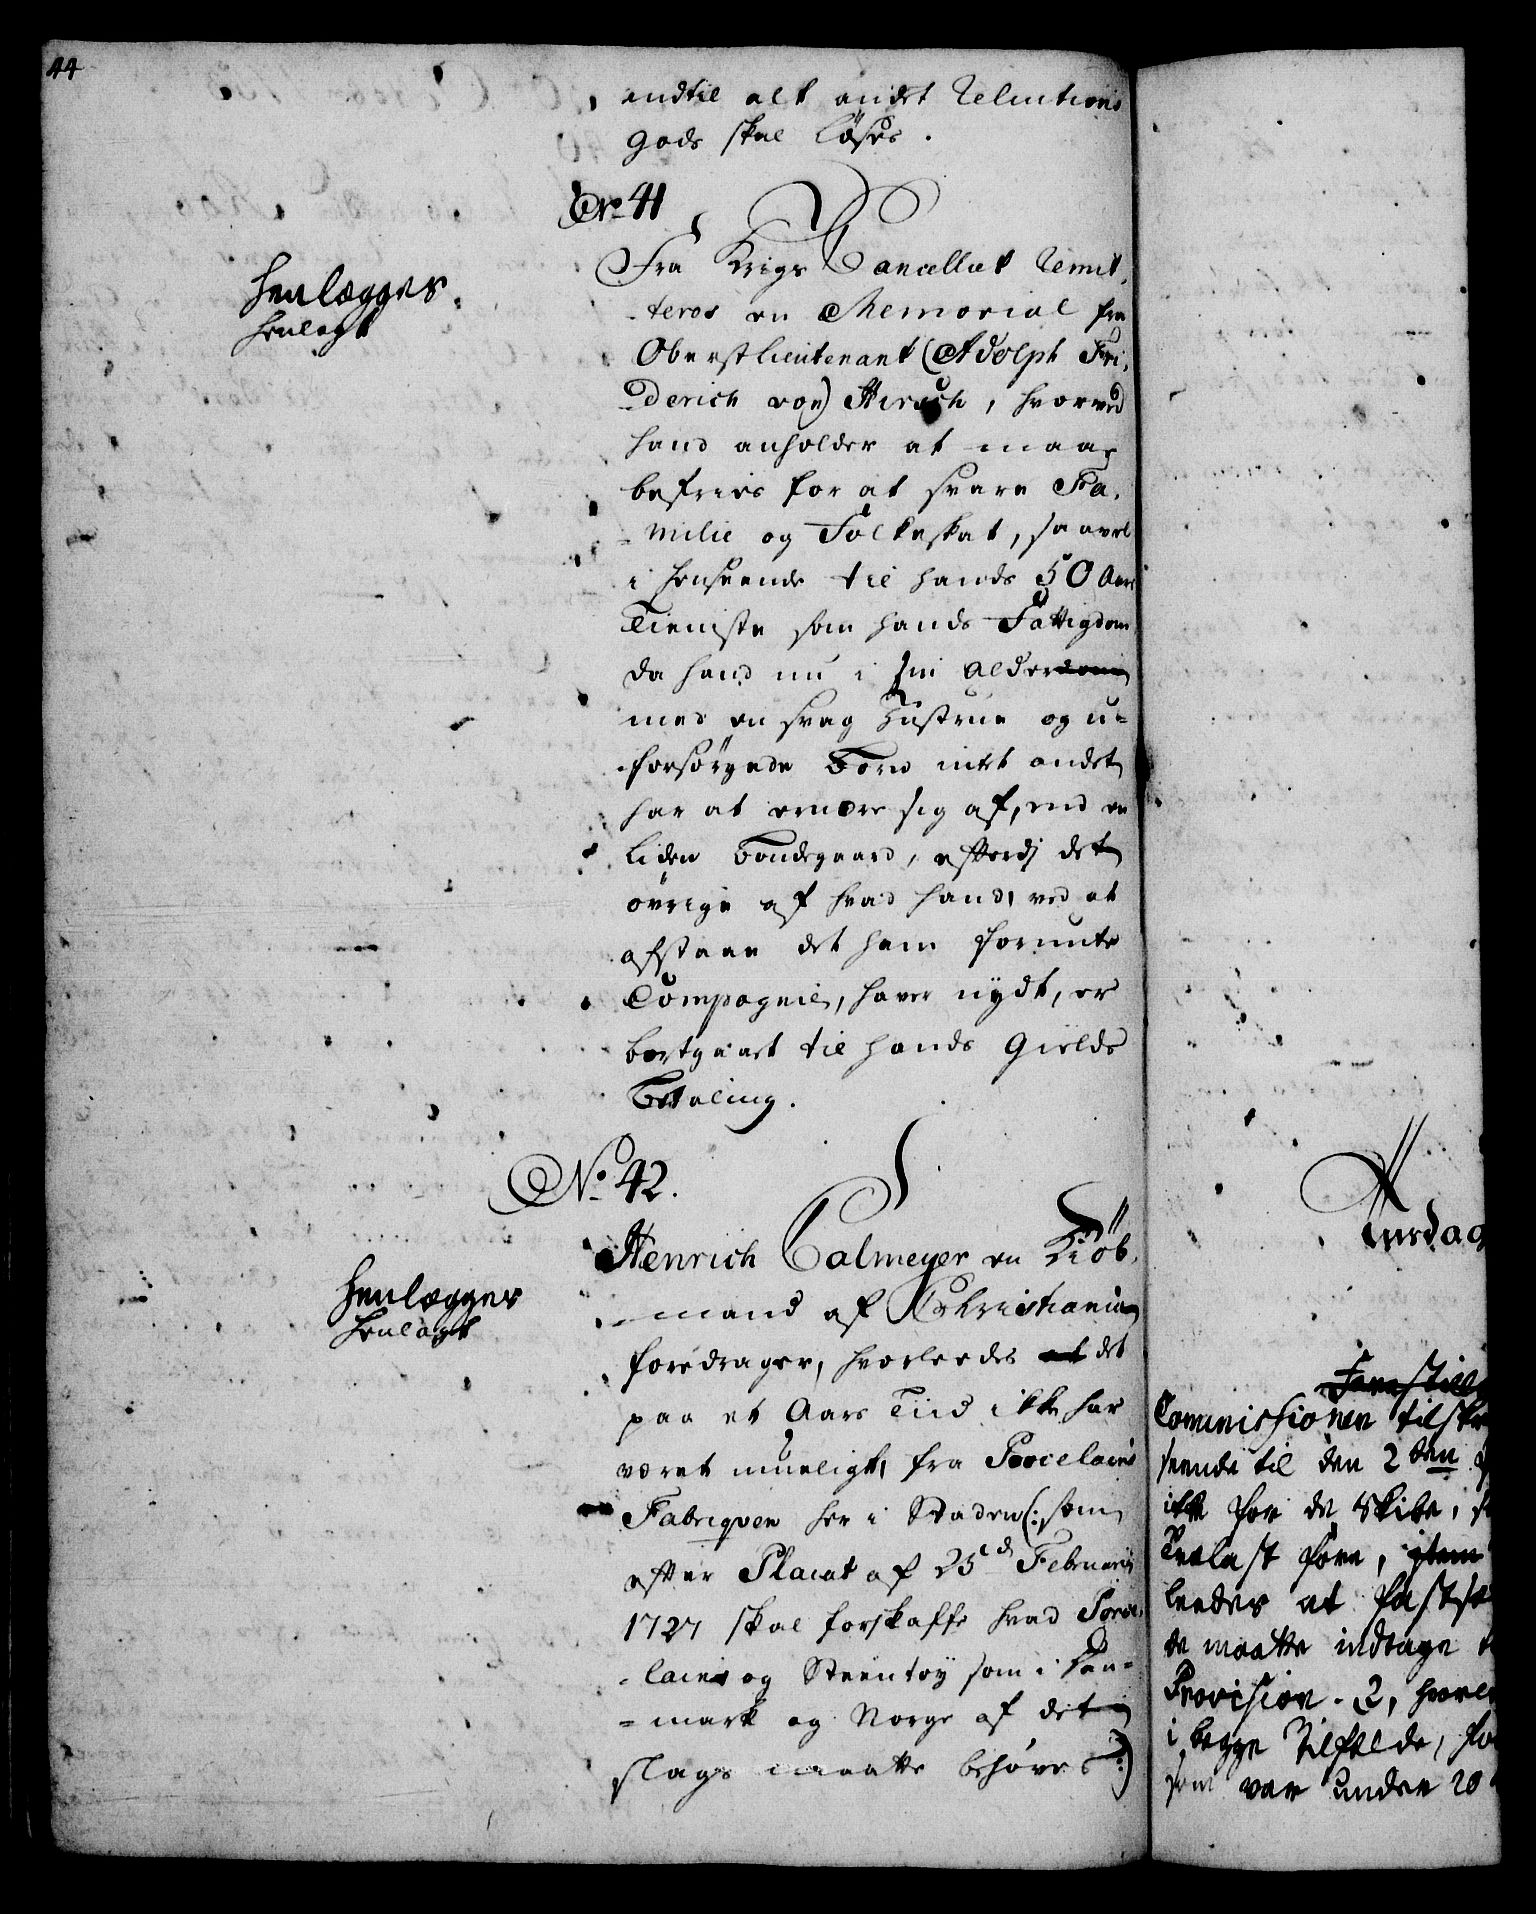 44
endtil alt andet Reluitions
gods skal löses.
No 41
Fra Krigs Cancelliet remit-
teres en Memorial fra
Oberstlieutenant (Adolph Fri-
derich von) Hirsch, hvorved
hand anholder at maae
befries for at svare Fa-
milie og Folkeskat, saavel
i henseende til hands 50 Aars
Tieniste som hands Fattigdom
da hand nu i sin Alderdom
med en svag Hustrue og u-
forsörgede Börn intet andet
har at ernære sig af, end en
liden Bondegaard, efterdj det
övrige af hvad hand, ved at
afstaae det ham forunte
Compagnie, haver nydt, er
bortgaaet til hands Gields
Betaling.
henlægges.
henlagt
No. 42.
Henrich Calmeyer en Kiöb-
mand af Christiania
foredrager, hvorleedes at det
paa et Aars Tiid ikke har
været mueligt, fra Porcelains
Fabriqven her i Staden (: som
efter Placat af 25d Februarij
1727 skal forskaffe hvad Force-
lains og Steentöy som i Dan-
mark og Norge af det
slags maatte behöves :)
henlægges
henlagt
Aursdag
Forestill
Commissionen tilskr
seende til den 2den
ikke for de Skibe, s
Trelast före, item
leedes at fastsæ
de maatte indtage
Provision. 2, hvorl
i begge Tilfælde, for
som var under 20